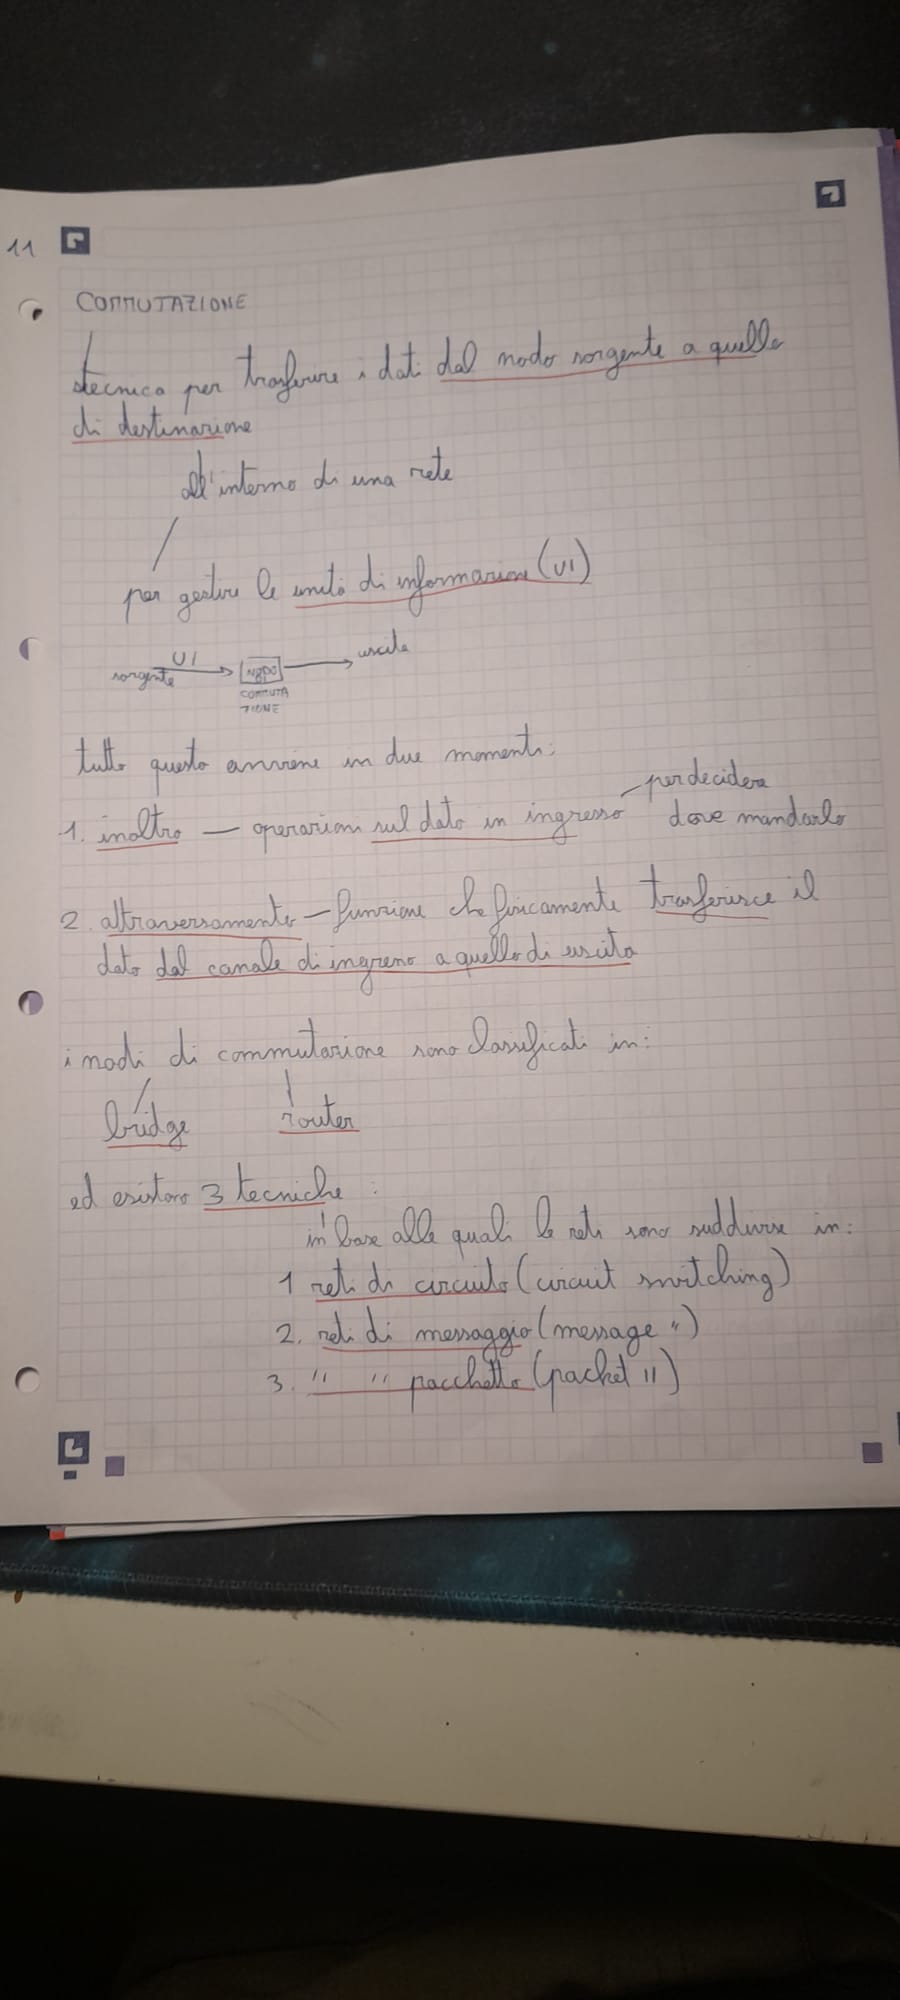 11
COMMUTAZIONE
tecnica per trasferire i dati dal nodo sorgente a quello
di destinazione
all'interno di una rete
per gestire le unità di informazione (UI)
sorgente UI NODO uscita
COMMUTA
ZIONE
tutto questo avviene in due momenti:
per decidere
1. inoltro — operazioni sul dato in ingresso dove mandarlo
2. attraversamento — funzione che fisicamente trasferisce il
dato dal canale di ingresso a quello di uscita
i nodi di commutazione sono classificati in:
bridge router
ed esistono 3 tecniche:
in base alle quali le reti sono suddivise in:
1 reti di circuito (circuit switching)
2. reti di messaggio (message ")
3. " " pacchetto (packet ")